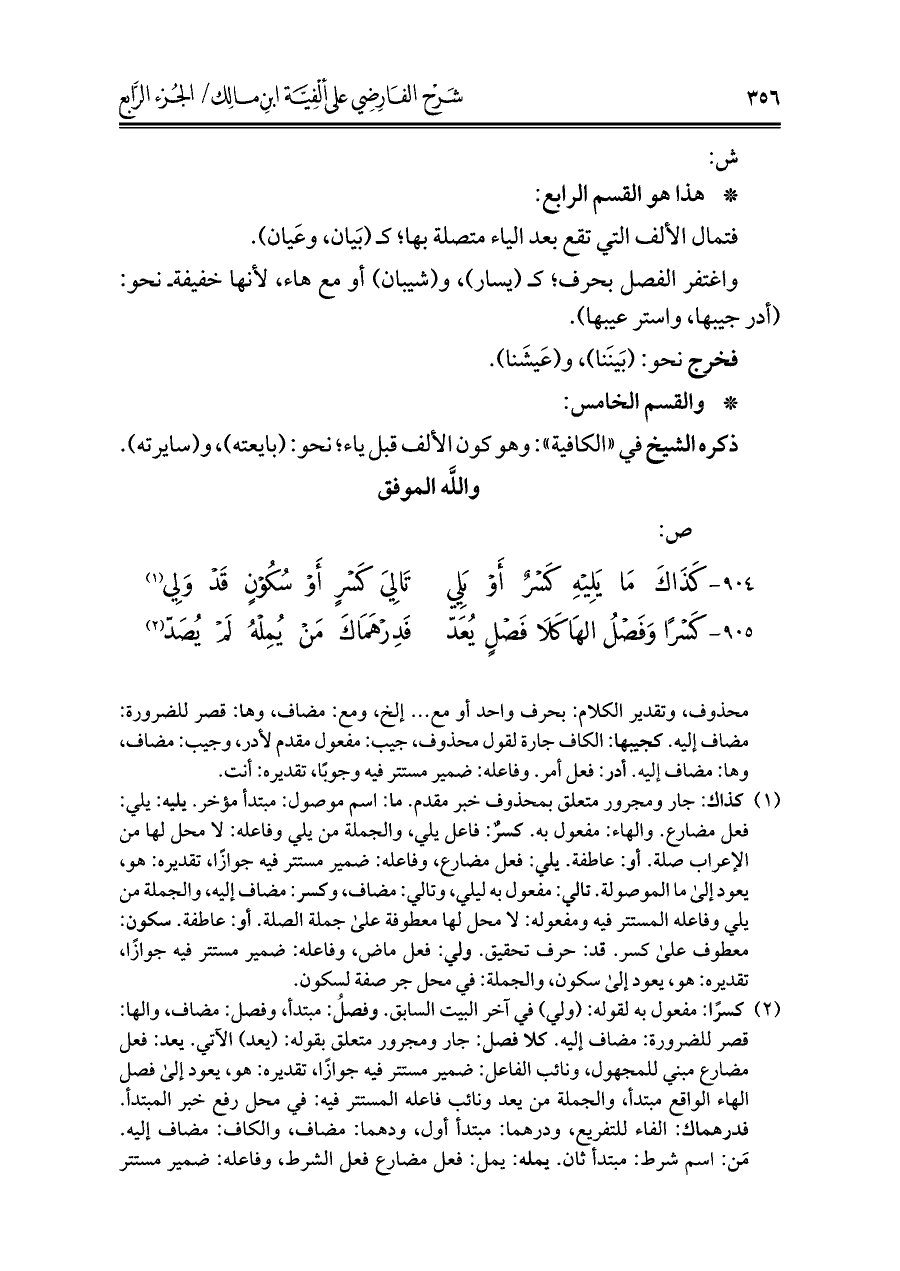 ٣٥٦ شَرْح الفَارِضِي على أَلْفِيَّة ابنِ مالِك/ الجُزء الرَّابع
ش:
* هذا هو القسم الرابع:
فتمال الألف التي تقع بعد الياء متصلة بها؛ كـ (بَيان، وعَيان).
واغتفر الفصل بحرف؛ كـ (يسار)، و(شيبان) أو مع هاء، لأنها خفيفةـ نحو:
(أدر جيبها، واستر عيبها).
فخرج نحو: (بَينَنا)، و(عَيشَنا).
* والقسم الخامس:
ذكره الشيخ في «الكافية»: وهو كون الألف قبل ياء؛ نحو: (بايعته)، و(سايرته).
واللَّه الموفق
ص:
٩٠٤- كَذَاكَ مَا يَلِيْهِ كَسْرٌ أَوْ يَلِي تَالِيَ كَسْرٍ أَوْ سُكُوْنٍ قَدْ وَلِي(١)
٩٠٥- كَسْرًا وَفَصْلُ الهَا كَلَا فَصْلٍ يُعَدّ فَدِرْهَمَاكَ مَنْ يُمِلْهُ لَمْ يُصَدّ(٢)
محذوف، وتقدير الكلام: بحرف واحد أو مع... إلخ، ومع: مضاف، وها: قصر للضرورة:
مضاف إليه. كجيبها: الكاف جارة لقول محذوف، جيب: مفعول مقدم لأدر، وجيب: مضاف،
وها: مضاف إليه. أدر: فعل أمر. وفاعله: ضمير مستتر فيه وجوبًا، تقديره: أنت.
(١) كذاك: جار ومجرور متعلق بمحذوف خبر مقدم. ما: اسم موصول: مبتدأ مؤخر. يليه: يلي:
فعل مضارع. والهاء: مفعول به. كسرٌ: فاعل يلي، والجملة من يلي وفاعله: لا محل لها من
الإعراب صلة. أو: عاطفة. يلي: فعل مضارع، وفاعله: ضمير مستتر فيه جوازًا، تقديره: هو،
يعود إلىٰ ما الموصولة. تالي: مفعول به ليلي، وتالي: مضاف، وكسر: مضاف إليه، والجملة من
يلي وفاعله المستتر فيه ومفعوله: لا محل لها معطوفة علىٰ جملة الصلة. أو: عاطفة. سكون:
معطوف علىٰ كسر. قد: حرف تحقيق. ولي: فعل ماض، وفاعله: ضمير مستتر فيه جوازًا،
تقديره: هو، يعود إلىٰ سكون، والجملة: في محل جر صفة لسكون.
(٢) كسرًا: مفعول به لقوله: (ولي) في آخر البيت السابق. وفصلُ: مبتدأ، وفصل: مضاف، والها:
قصر للضرورة: مضاف إليه. كلا فصل: جار ومجرور متعلق بقوله: (يعد) الآتي. يعد: فعل
مضارع مبني للمجهول، ونائب الفاعل: ضمير مستتر فيه جوازًا، تقديره: هو، يعود إلىٰ فصل
الهاء الواقع مبتدأ، والجملة من يعد ونائب فاعله المستتر فيه: في محل رفع خبر المبتدأ.
فدرهماك: الفاء للتفريع، ودرهما: مبتدأ أول، ودهما: مضاف، والكاف: مضاف إليه.
مَن: اسم شرط: مبتدأ ثان. يمله: يمل: فعل مضارع فعل الشرط، وفاعله: ضمير مستتر